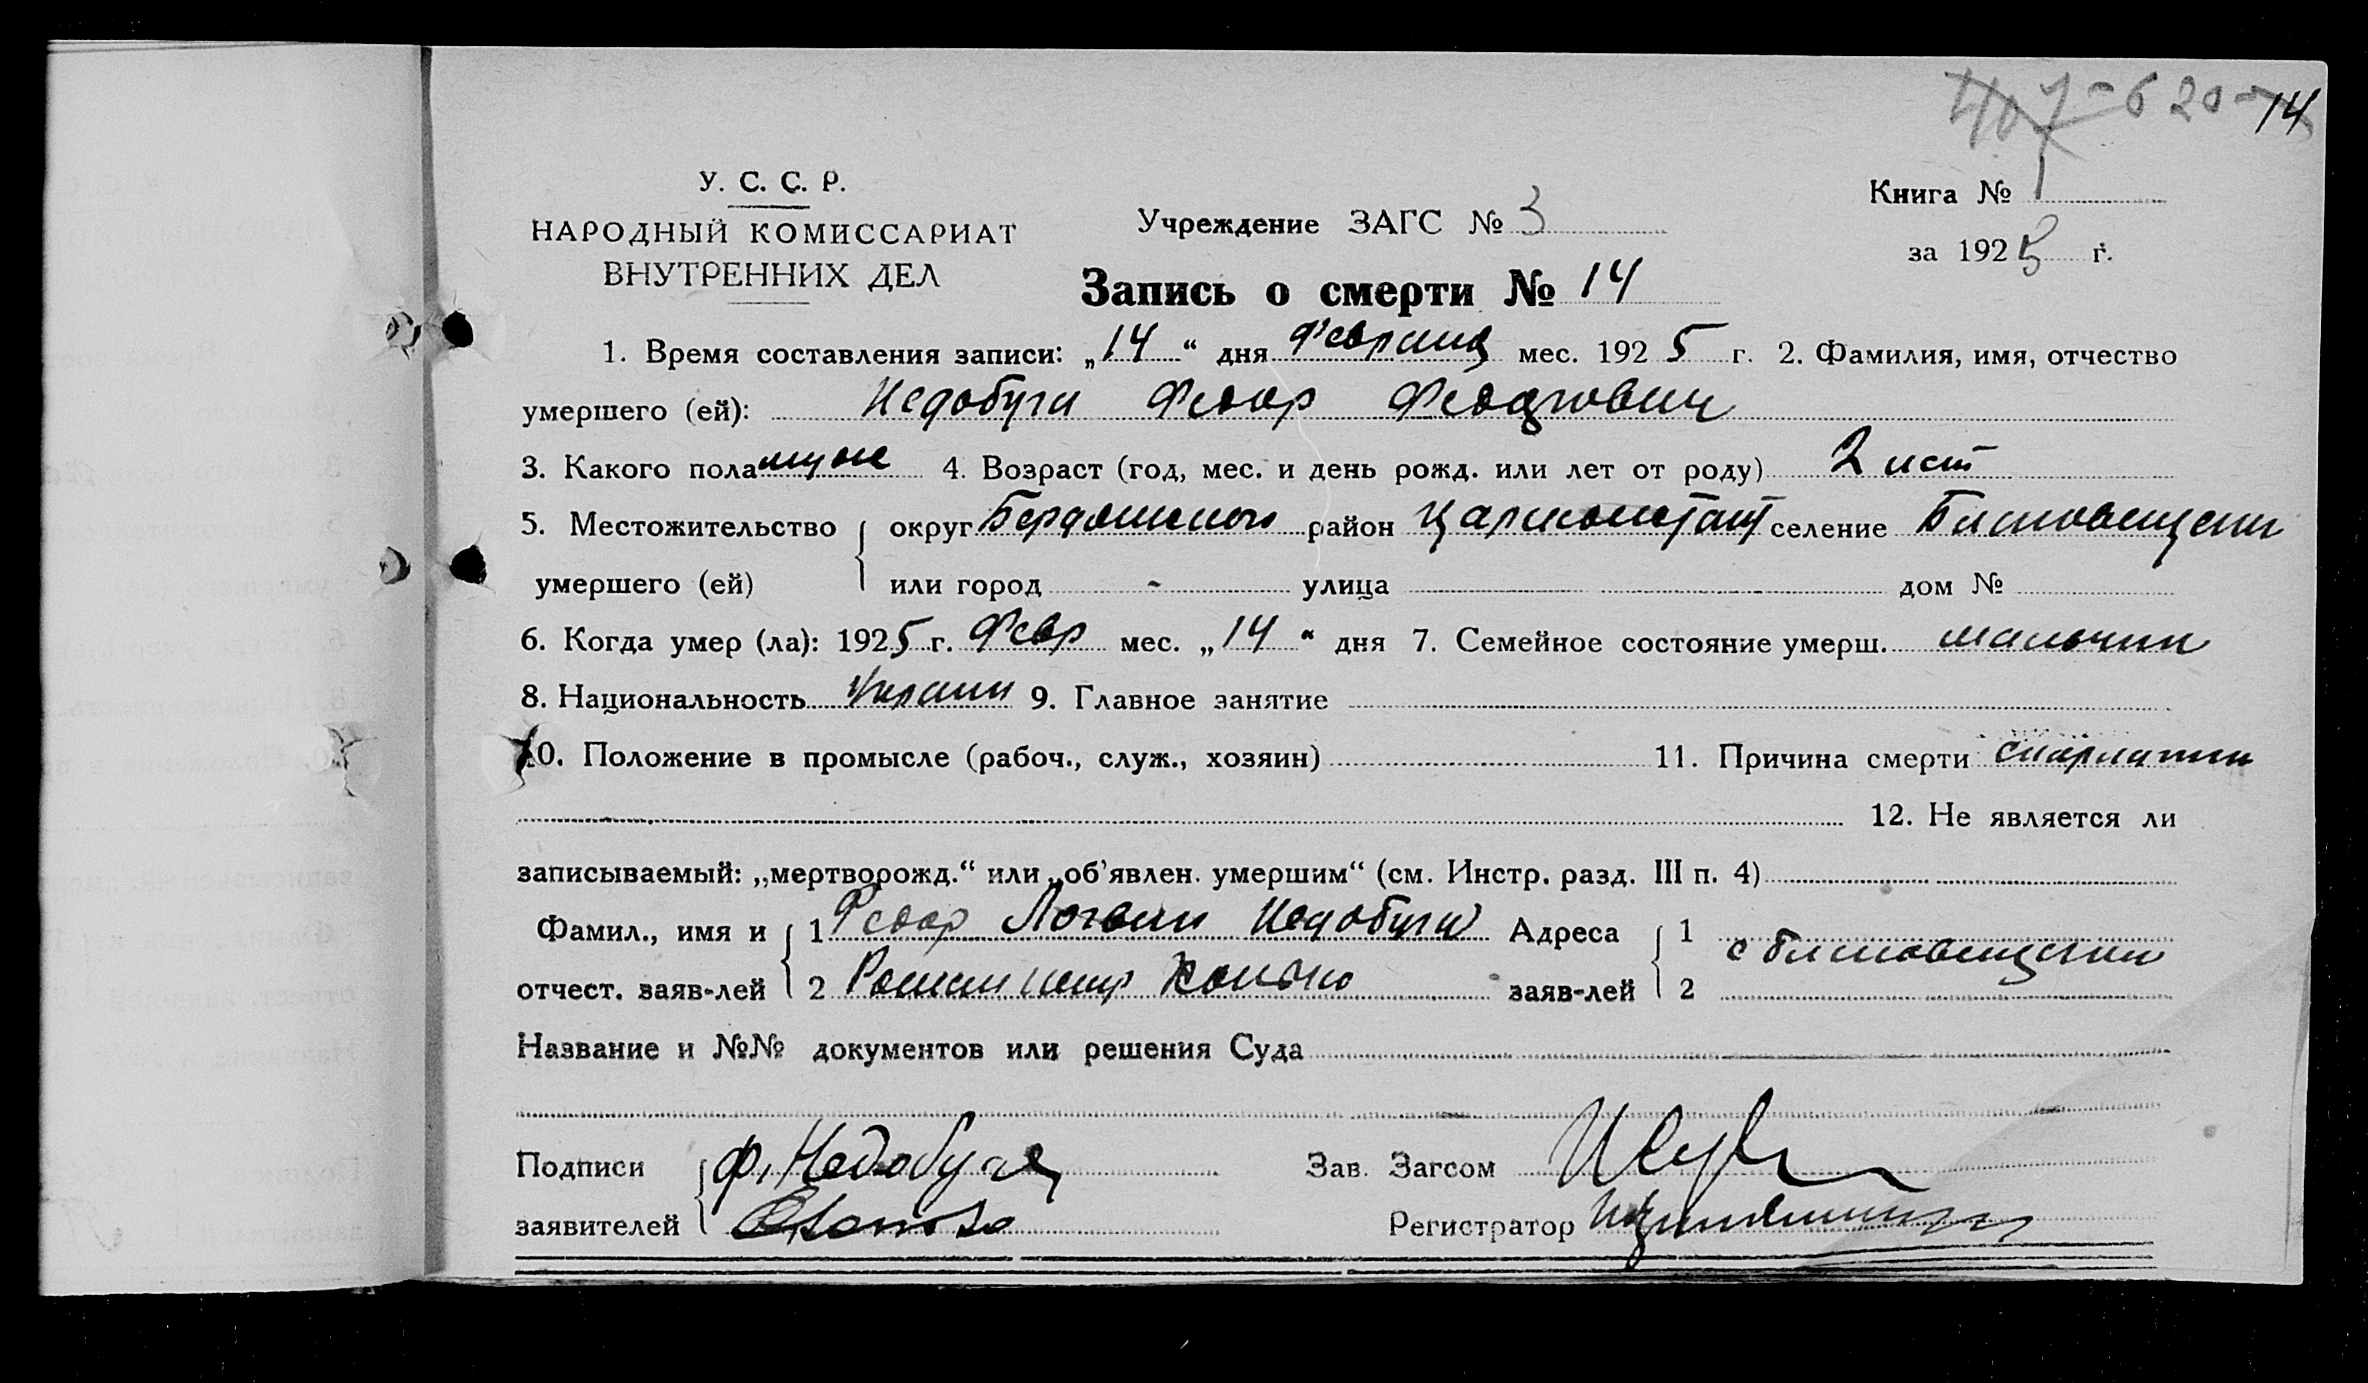 407-620-14
У. С. С. Р.
НАРОДНЫЙ КОМИССАРИАТ
ВНУТРЕННИХ ДЕЛ
Учреждение ЗАГС № 3
Книга № 1
за 1925 г.
Запись о смерти № 14
1. Время составления записи: „14“ дня Февраля мес. 1925 г. 2. Фамилия, имя, отчество
умершего (ей): Недобуга Федор Федорович
3. Какого пола муж 4. Возраст (год, мес. и день рожд. или лет от роду) 2 лет
5. Местожительство округ район Царконстант селение
умершего (ей) или город - улица дом №
6. Когда умер (ла): 1925 г. Февр мес. „14“ дня 7. Семейное состояние умерш.
8. Национальность Украин 9. Главное занятие
10. Положение в промысле (рабоч., служ., хозяин) 11. Причина смерти скарлатина
12. Не является ли
записываемый: „мертворожд.“ или „об’явлен. умершим“ (см. Инстр. разд. III п. 4)
Фамил., имя и 1 Федор Логвин Недобуга Адреса 1
отчест. заяв-лей 2 Роман заяв-лей 2
Название и №№ документов или решения Суда
Подписи Ф. Недобуга Зав. Загсом
заявителей Регистратор